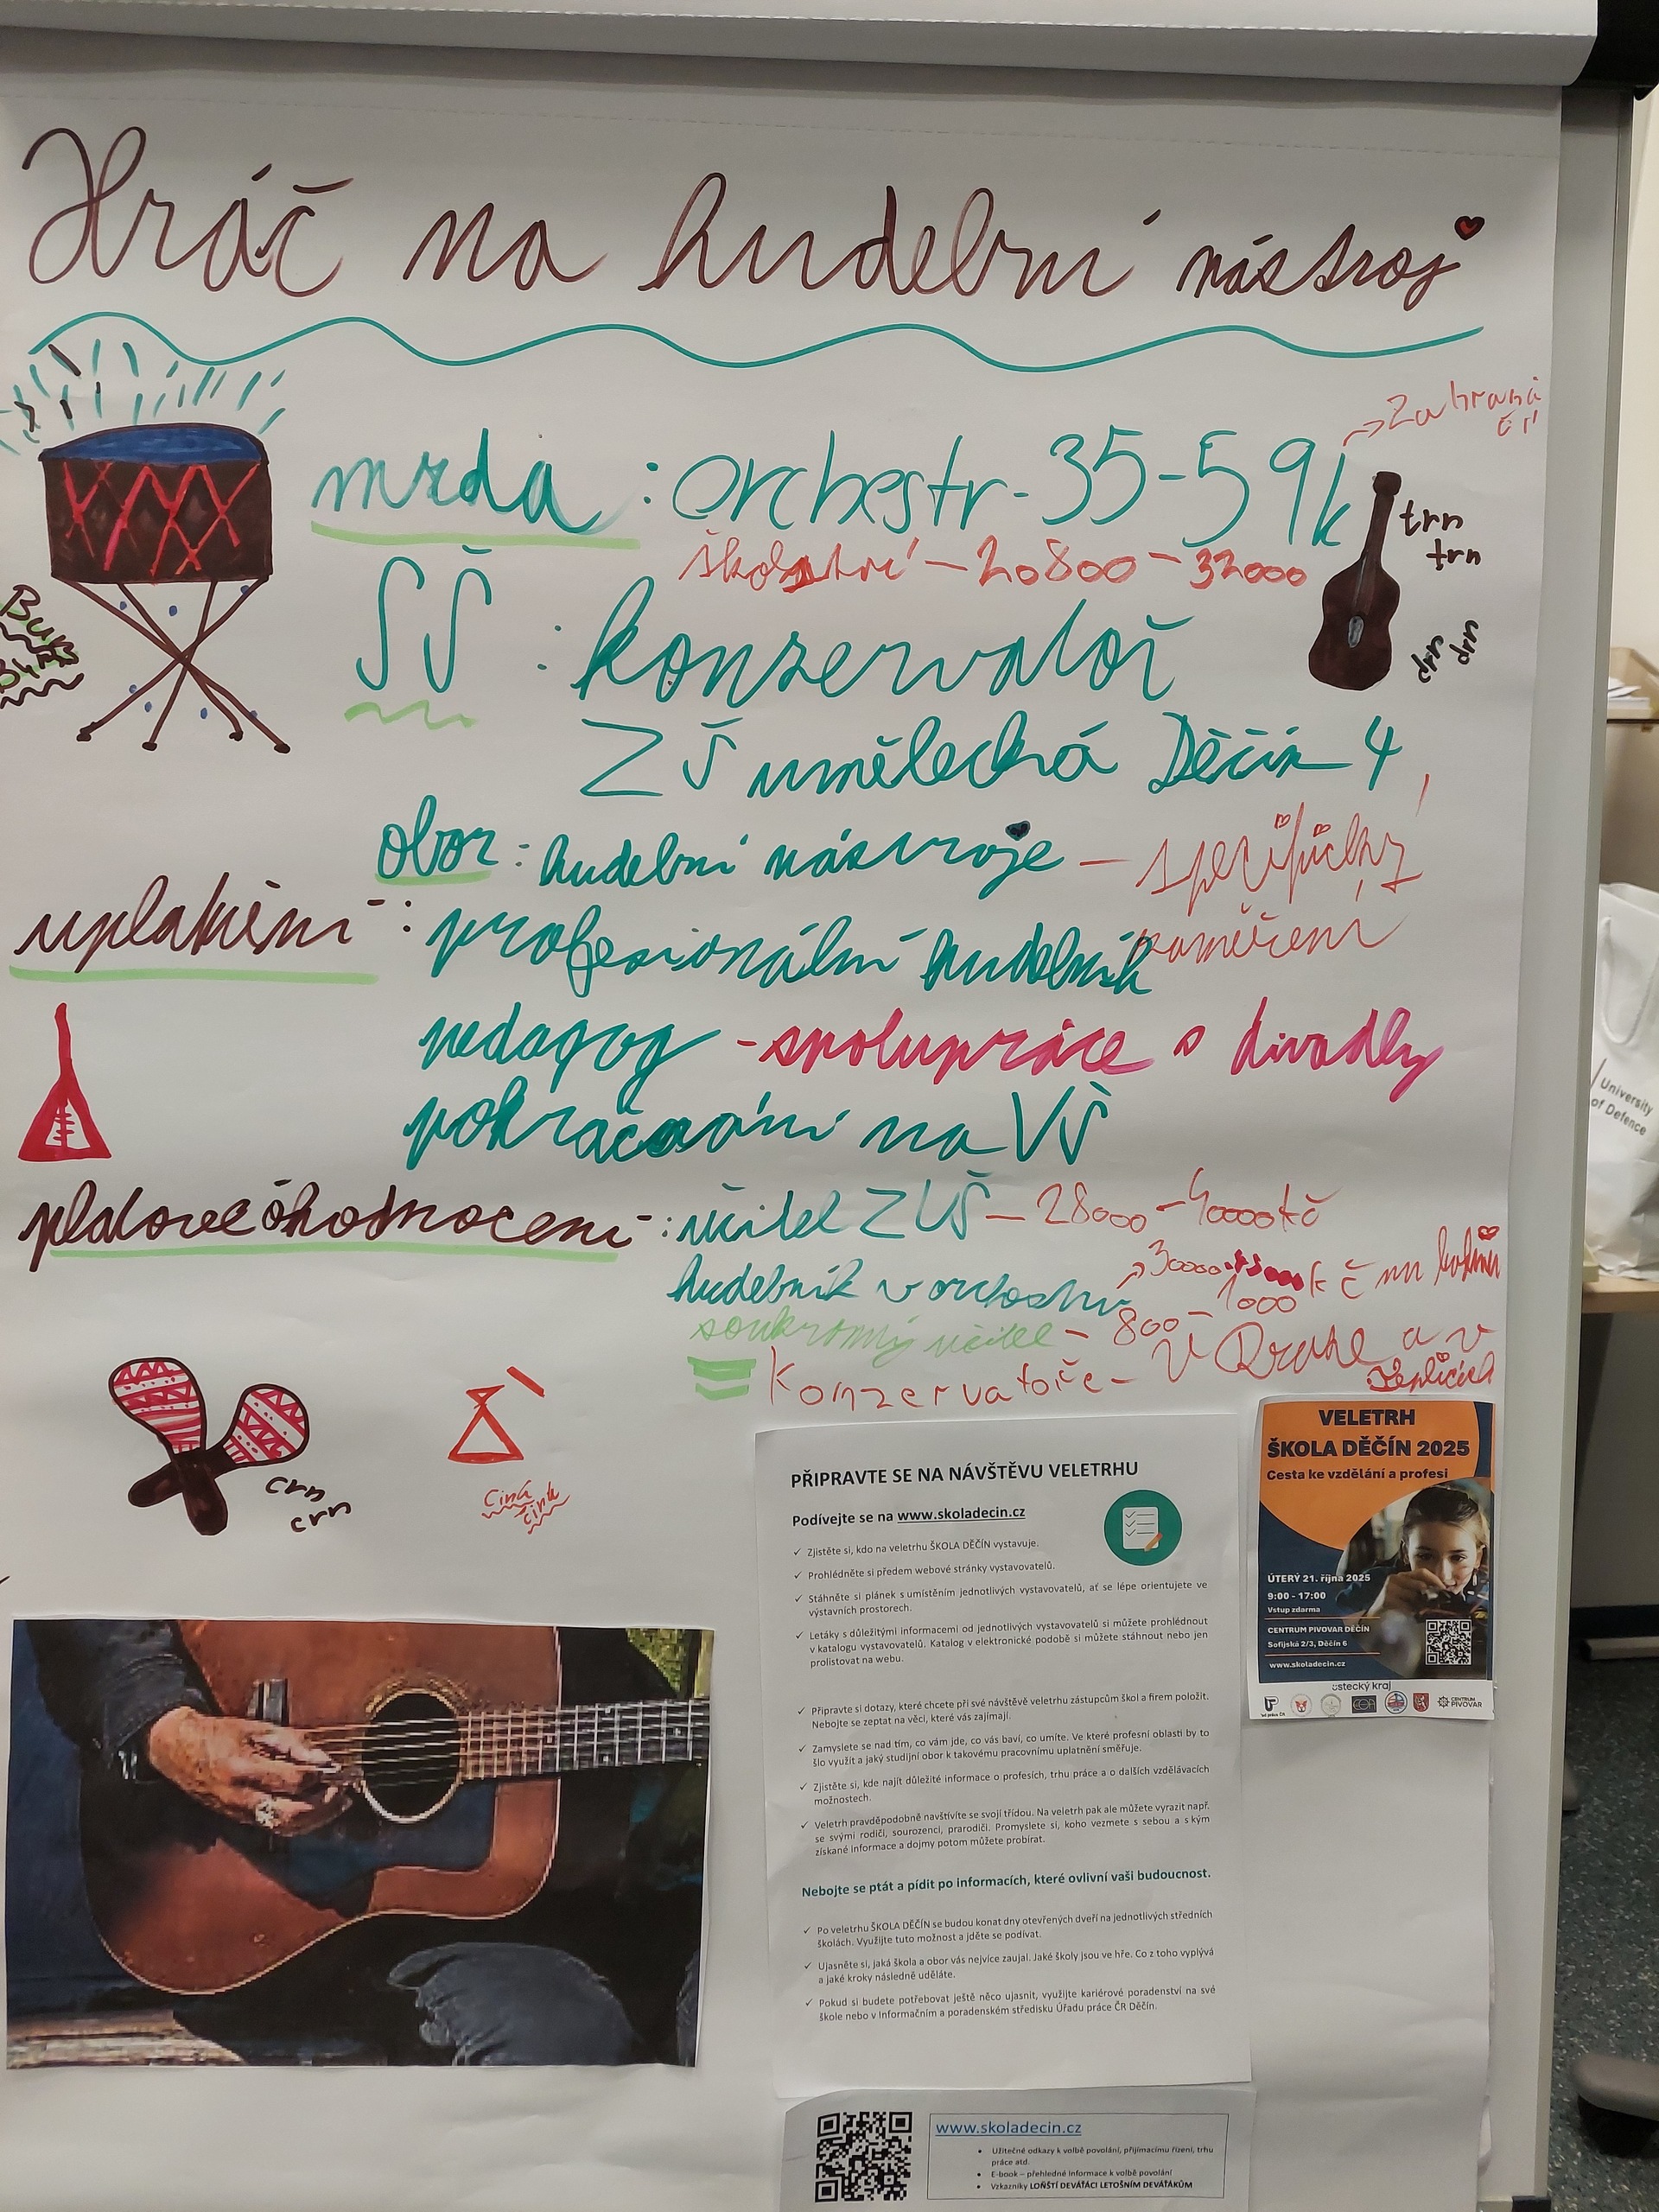 Hráč na hudební nástroj
→ Zahrani
čí
mzda : orchestr - 35-59k
školství - 20800 - 32000
trn
trn
drn
drn
SŠ : konzervatoř
ZŠ umělecká Děčín 4
obor : hudební nástroje -
zaměření
uplatnění : profesionální hudebník
pedagog - spolupráce s divadly
pokračování na VŠ
platové ohodnocení - : učitel ZUŠ - 28000 - 40000 kč
hudebník v orchestru
soukromý učitel - 800 - 1000 kč na hodinu
Konzervatoře - v Praze a v
Teplicích
crn
crn
cink
cink
PŘIPRAVTE SE NA NÁVŠTĚVU VELETRHU
Podívejte se na www.skoladecin.cz
✓ Zjistěte si, kdo na veletrhu ŠKOLA DĚČÍN vystavuje.
✓ Prohlédněte si předem webové stránky vystavovatelů.
✓ Stáhněte si plánek s umístěním jednotlivých vystavovatelů, ať se lépe orientujete ve
výstavních prostorech.
✓ Letáky s důležitými informacemi od jednotlivých vystavovatelů si můžete prohlédnout
v katalogu vystavovatelů. Katalog v elektronické podobě si můžete stáhnout nebo jen
prolistovat na webu.
✓ Připravte si dotazy, které chcete při své návštěvě veletrhu zástupcům škol a firem položit.
Nebojte se zeptat na věci, které vás zajímají.
✓ Zamyslete se nad tím, co vám jde, co vás baví, co umíte. Ve které profesní oblasti by to
šlo využít a jaký studijní obor k takovému pracovnímu uplatnění směřuje.
✓ Zjistěte si, kde najít důležité informace o profesích, trhu práce a o dalších vzdělávacích
možnostech.
✓ Veletrh pravděpodobně navštívíte se svojí třídou. Na veletrh pak ale můžete vyrazit např.
se svými rodiči, sourozenci, prarodiči. Promyslete si, koho vezmete s sebou a s kým
získané informace a dojmy potom můžete probírat.
Nebojte se ptát a pídit po informacích, které ovlivní vaši budoucnost.
✓ Po veletrhu ŠKOLA DĚČÍN se budou konat dny otevřených dveří na jednotlivých středních
školách. Využijte tuto možnost a jděte se podívat.
✓ Ujasněte si, jaká škola a obor vás nejvíce zaujal. Jaké školy jsou ve hře. Co z toho vyplývá
a jaké kroky následně uděláte.
✓ Pokud si budete potřebovat ještě něco ujasnit, využijte kariérové poradenství na své
škole nebo v Informačním a poradenském středisku Úřadu práce ČR Děčín.
VELETRH
ŠKOLA DĚČÍN 2025
Cesta ke vzdělání a profesi
ÚTERÝ 21. října 2025
9:00 - 17:00
Vstup zdarma
CENTRUM PIVOVAR DĚČÍN
Sofijská 2/3, Děčín 6
www.skoladecin.cz
ústecký kraj
CENTRUM
PIVOVAR
www.skoladecin.cz
• Užitečné odkazy k volbě povolání, přijímacímu řízení, trhu
práce atd.
• E-book – přehledné informace k volbě povolání
• Vzkazníky LOŇŠTÍ DEVÁŤÁCI LETOŠNÍM DEVÁŤÁKŮM
University
of Defence